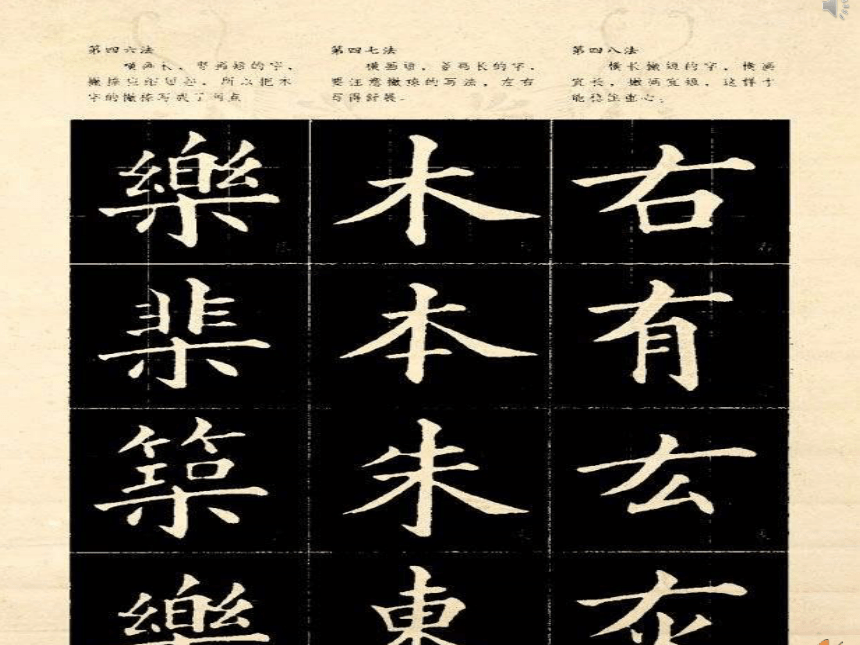 第四六法
横画长，竖画短的字，
撇捺宜缩短些，所以把木
字的撇捺写成了两点
第四七法
横画短，竖画长的字，
要注意撇捺的写法，左右
写得舒展。
第四八法
横长撇短的字，横画
宜长，撇画宜短，这样才
能稳住重心。
樂 木 右
棐 本 有
築 朱 厷
樂 東 灰